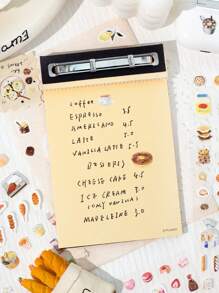 Coffee
ESPRESSO 3.5
AMERICANO 4.5
LATTE 5.0
VANILLA LATTE 5.5
DESSERT
CHEESE CAKE 4.5
ICE CREAM 3.0
(ONLY VANILLA)
MADELEINE 3.0